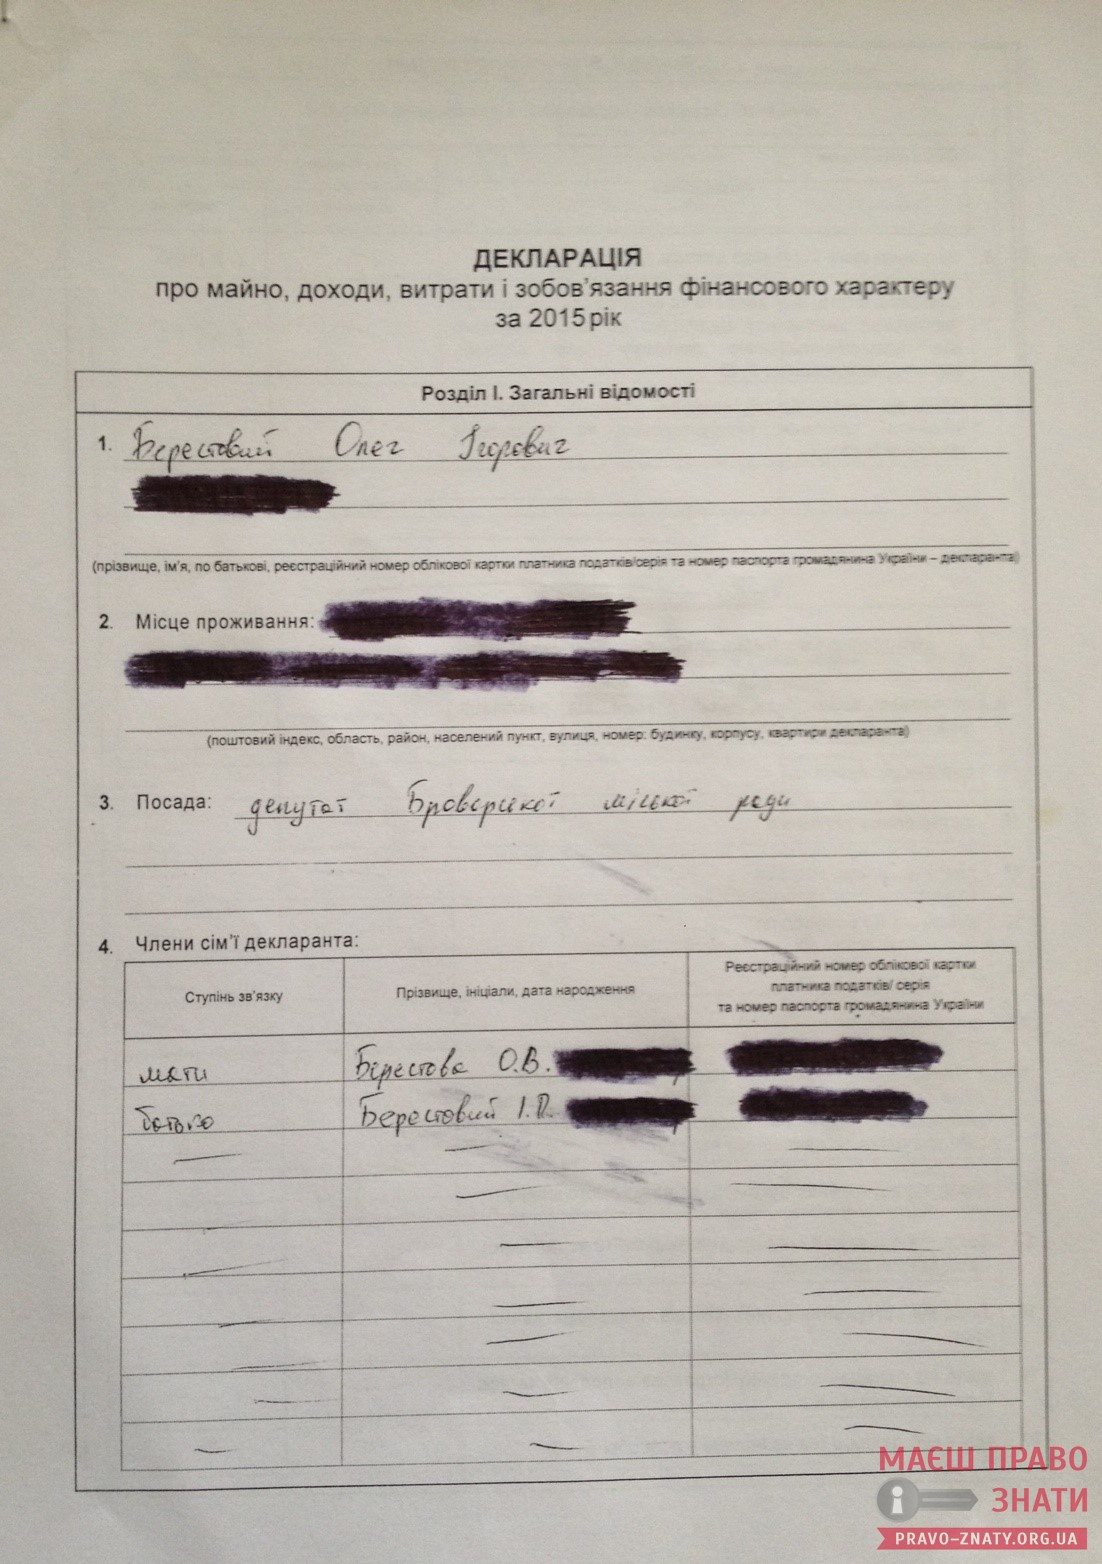 ДЕКЛАРАЦІЯ
про майно, доходи, витрати і зобов'язання фінансового характеру
за 2015 рік
Розділ I. Загальні відомості
1. Берестовий Олег Ігорович
(прізвище, ім'я, по батькові, реєстраційний номер облікової картки платника податків/серія та номер паспорта громадянина України – декларанта)
2. Місце проживання:
(поштовий індекс, область, район, населений пункт, вулиця, номер: будинку, корпусу, квартири декларанта)
3. Посада: депутат Броварської міської ради
4. Члени сім'ї декларанта:
Ступінь зв'язку
Прізвище, ініціали, дата народження
Реєстраційний номер облікової картки
платника податків/ серія
та номер паспорта громадянина України
мати Берестова О.В.
батько Берестовий І.П.
МАЄШ ПРАВО
ЗНАТИ
PRAVO-ZNATY.ORG.UA